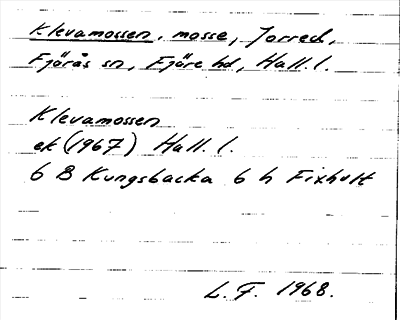 Klevamossen, mosse, Jorred,
Fjärås sn, Fjäre hd, Hall. l.
Klevamossen
ek (1967) Hall. l.
6 B Kungsbacka 6 h Fixhult
L. F. 1968.